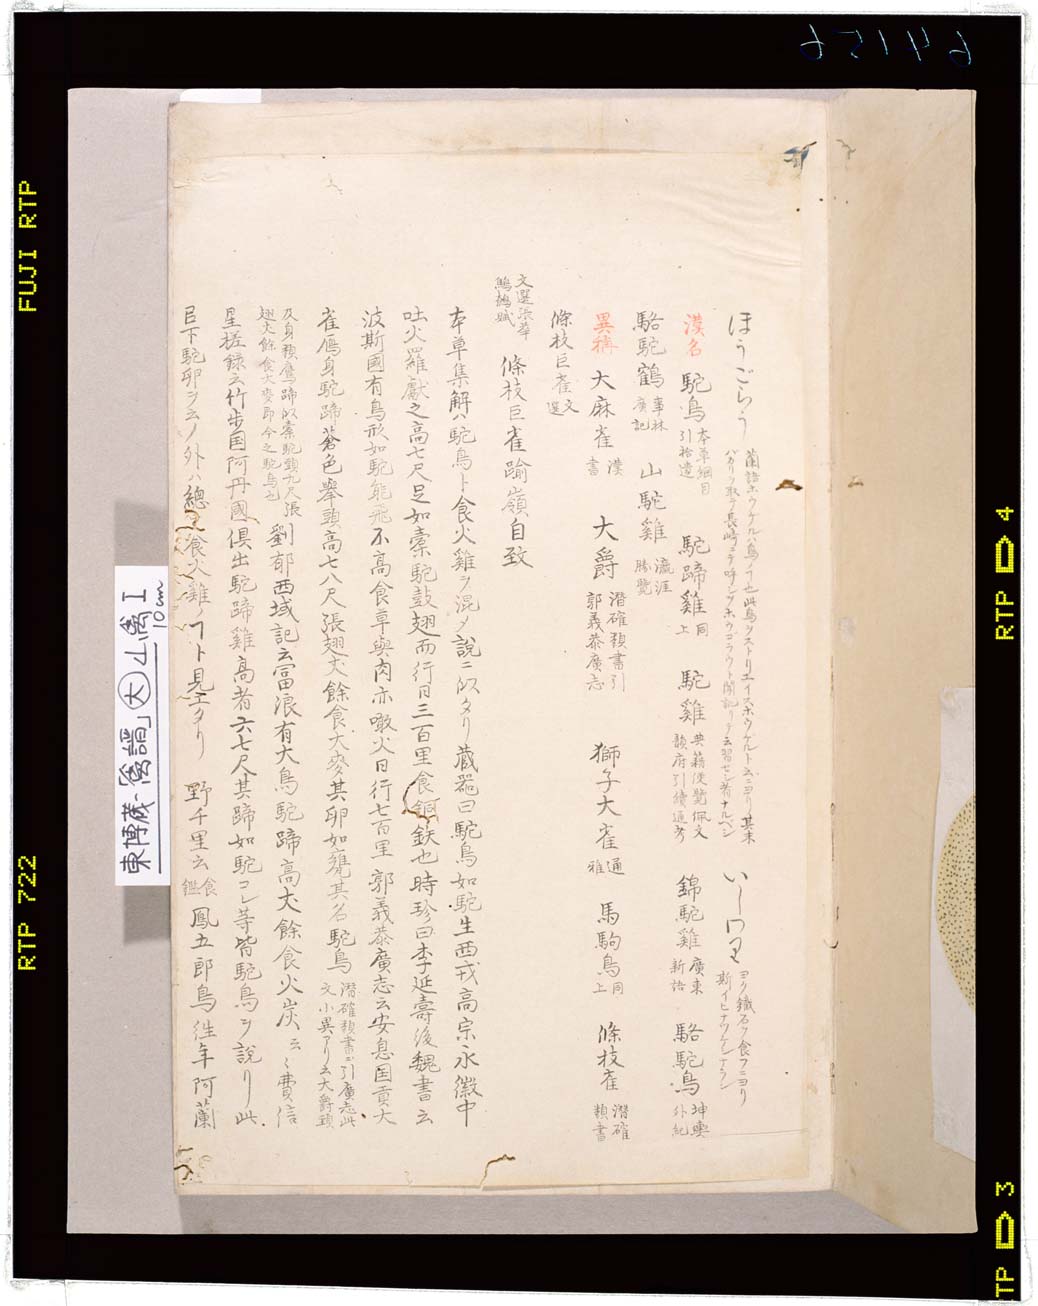 ほうごらう 蘭語ホウゲルハ鳥ノ丁也此鳥ヲストリユイスホウゲルト云ニヨリ其末
バカリヲ取テ長崎ニテ呼シヲホウゴラウト聞記リテ云習セシ者ナルベシ
いしわり ヨク鐵石ヲ食フニヨリ
斯イヒナツケシナラン
漢名 駝鳥 本草綱目
引拾遺 駝蹄雞 同
上 駝雞 典籍便覽佩文
韻府引續通考 錦駝雞 廣東
新語 駱駝鳥 坤輿
外紀
駱駝鶴 事林
廣記 山駝雞 瀛涯
勝覽
異稱 大麻雀 漢
書 大爵 潜確類書引
郭義恭廣志 獅子大雀 通
雅 馬駒鳥 同
上 條枝雀 潜確
類書
條枝巨雀 文
選
文選張華
鷦鷯賦 條枝巨雀踰嶺自致
本草集解ハ駝鳥ト食火雞ヲ混メ説ニ似タリ藏器曰駝鳥如駝生西戎高宗永徽中
吐火羅獻之高七尺足如槖駝鼓翅而行日三百里食銅鉄也時珍曰李延壽後魏書云
波斯國有鳥形如駝能飛不高食草與肉亦噉火日行七百里郭義恭廣志云安息国貢大
雀鴈身駝蹄蒼色舉頭高七八尺張翅丈餘食大麥其卵如甕其名駝鳥 潜確類書ニ引廣志此
文小異アリ云大爵頸
及身類鷹蹄似槖駝頭九尺張
翅丈餘食大麥即今之駝鳥也 劉郁西域記云冨浪有大鳥駝蹄高丈餘食火炭云々費信
星槎録云竹歩国阿丹國倶出駝蹄雞高者六七尺其蹄如駝コレ等皆駝鳥ヲ説リ此
巨下駝卵ヲ云ノ外ハ總テ食火雞ノ丁ト見エタリ 野千里云 食
鑑 鳳五郎鳥往年阿蘭
東博蔵・「禽譜」大 山禽 I
10cm
65146
FUJI RTP
RTP 722
RTP 4
RTP 3